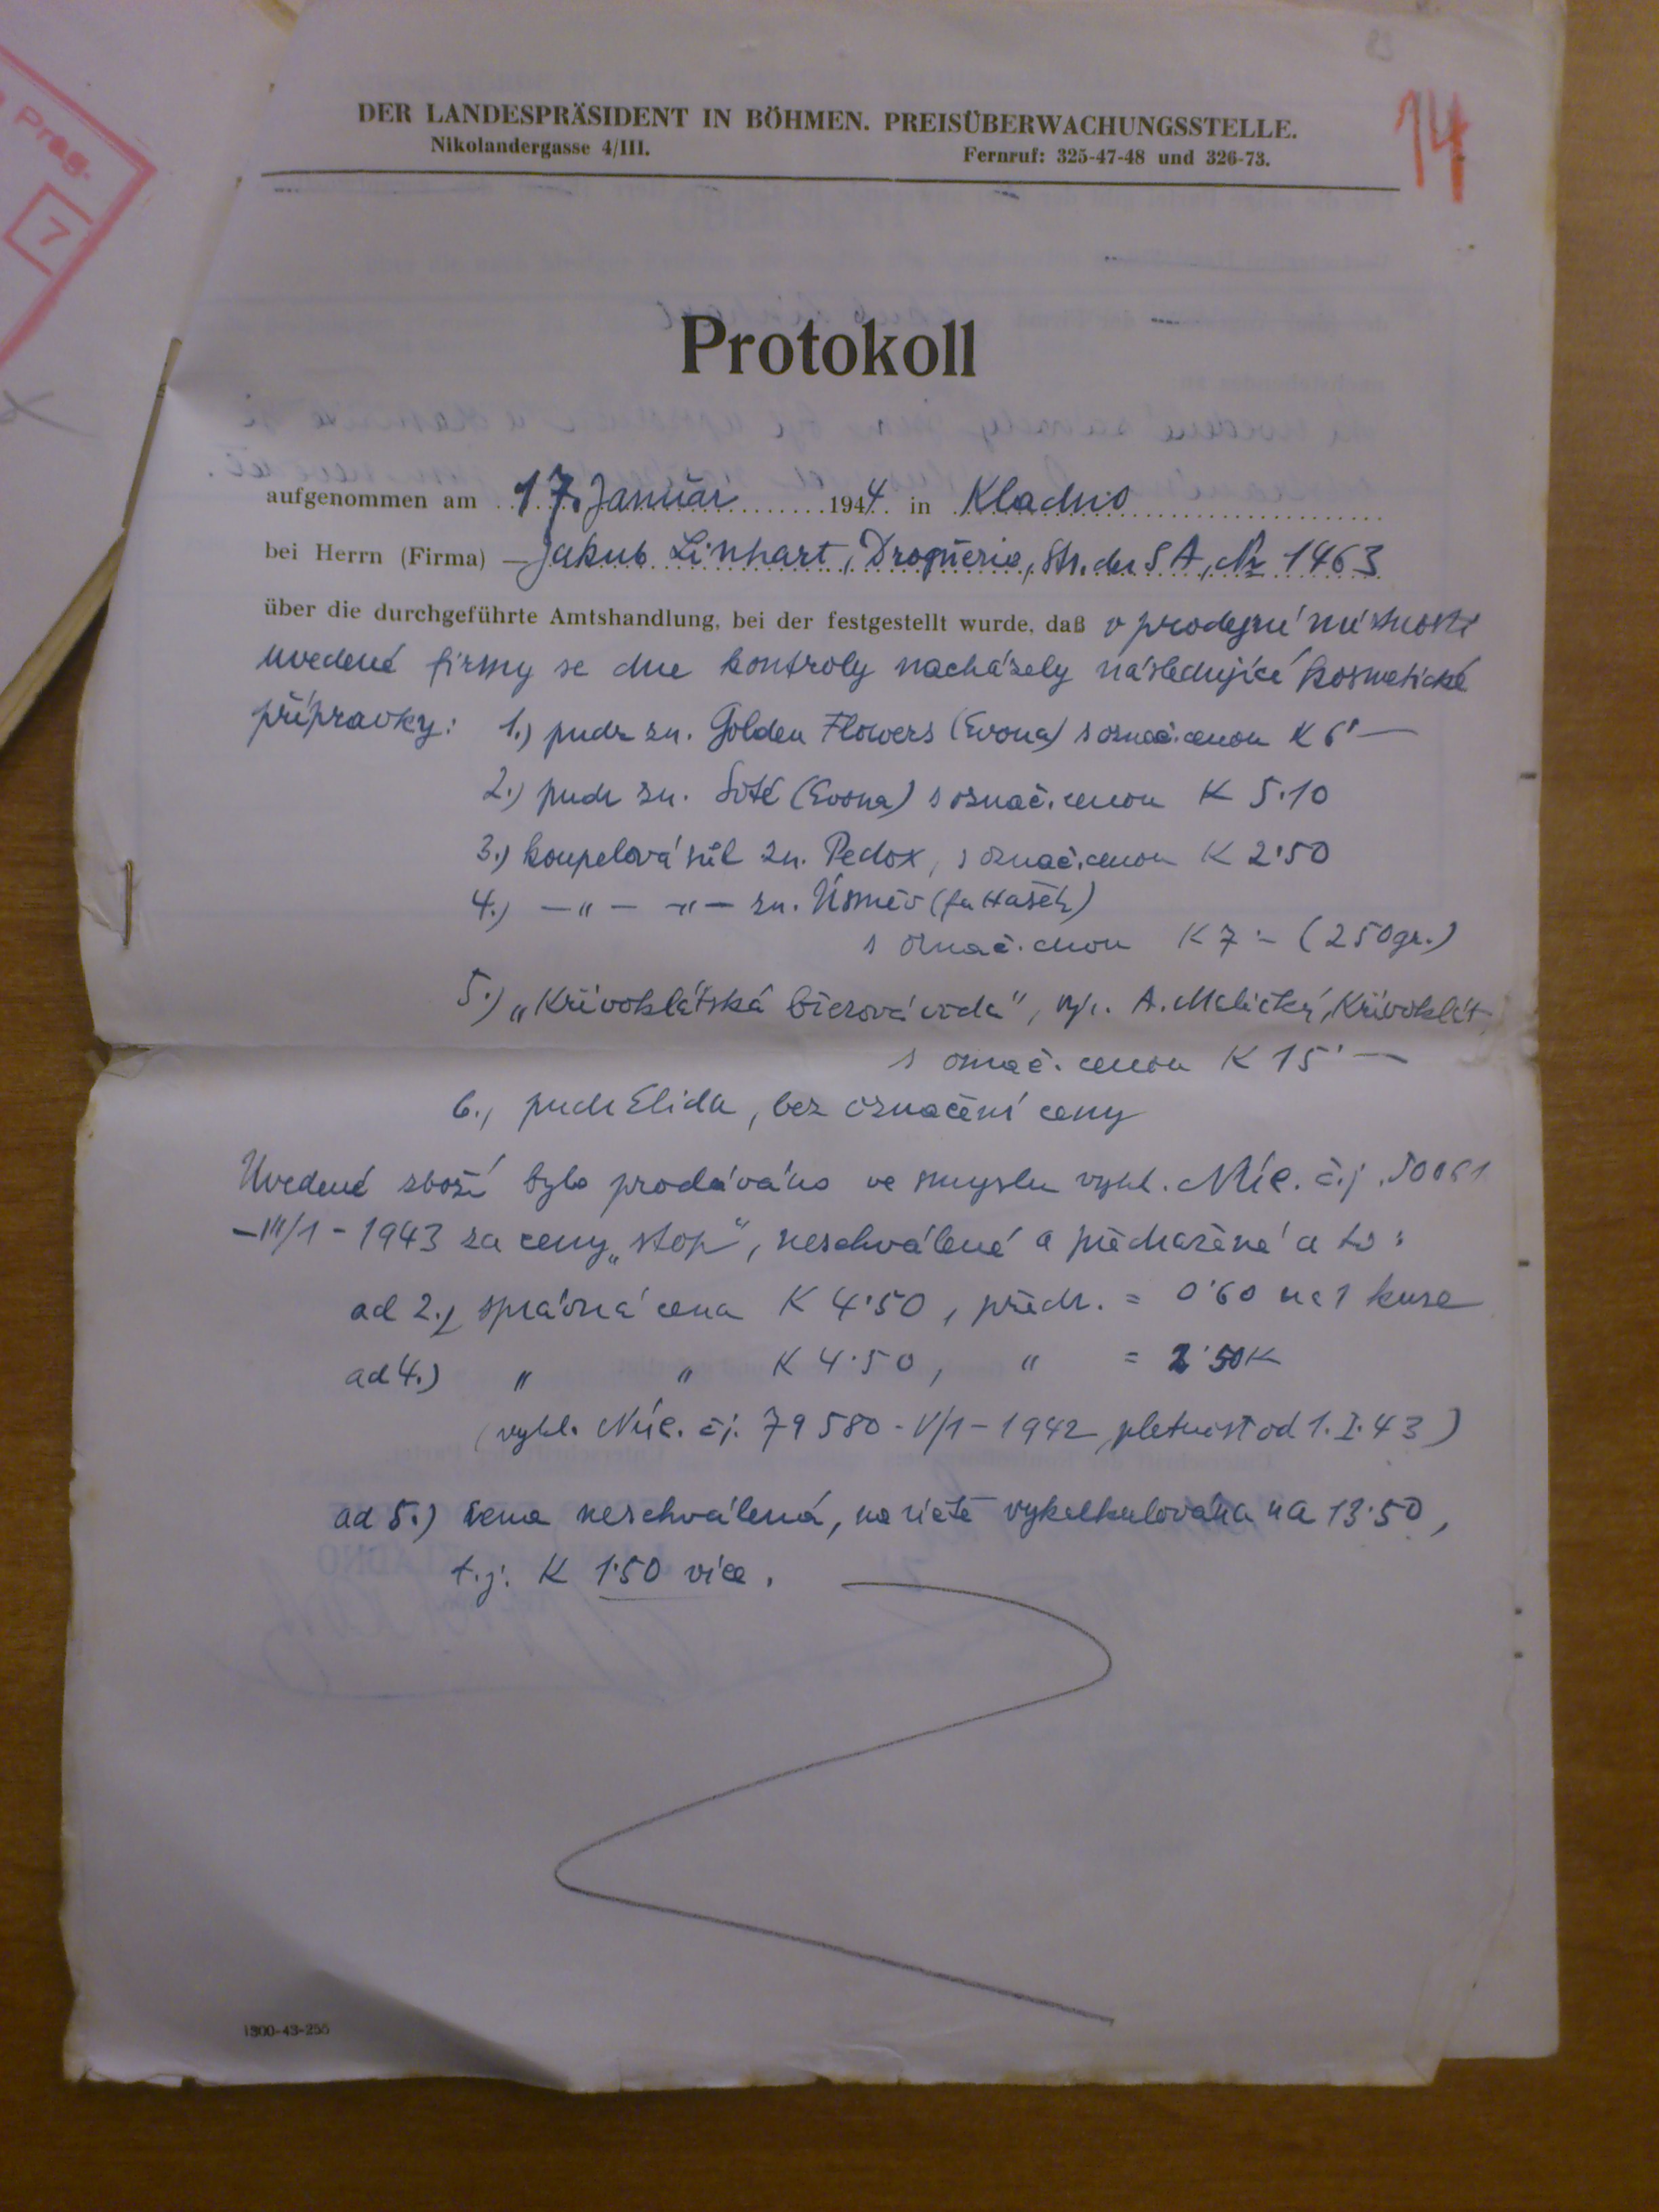 Prag.
7
83
14
DER LANDESPRÄSIDENT IN BÖHMEN. PREISÜBERWACHUNGSSTELLE.
Nikolandergasse 4/III. Fernruf: 325-47-48 und 326-73.
Protokoll
aufgenommen am 17. Januar 1944. in Kladno
bei Herrn (Firma) – Jakub Linhart, Drogerie, Str. der SA, Nr 1463
über die durchgeführte Amtshandlung, bei der festgestellt wurde, daß v prodejní místnosti
uvedené firmy se dne kontroly nacházely následující kosmetické
přípravky: 1.) pudr zn. Golden Flowers (Evona) s označ. cenou K 6'—
2.) pudr zn. (Evona) s označ. cenou K 5.10
3.) koupelová sůl zn. Pedox, s označ. cenou K 2'50
4.) —„— —„— zn. Úsměv (fa Hašek)
s označ. cenou K 7'– (250gr.)
5.) „Křivoklátská březová voda", výr. A. Malický, Křivoklát
s označ. cenou K 15'—
6.) pudr Elida, bez označení ceny
Uvedené zboží bylo prodáváno ve smyslu vyhl. Núc. č.j. 50061
–III/1 – 1943 za ceny „stop", neschválené a předražené a to:
ad 2.) správná cena K 4'50, předr. = 0'60 na 1 kuse
ad 4.) „ „ K 4'50, „ = 2'50K
(vyhl. Núc. čj. 79580 - V/1 – 1942, platnost od 1.I.43)
ad 5.) cena neschválená, na vykalkulována na 13'50,
t.j. K 1'50 více.
1300-43-255